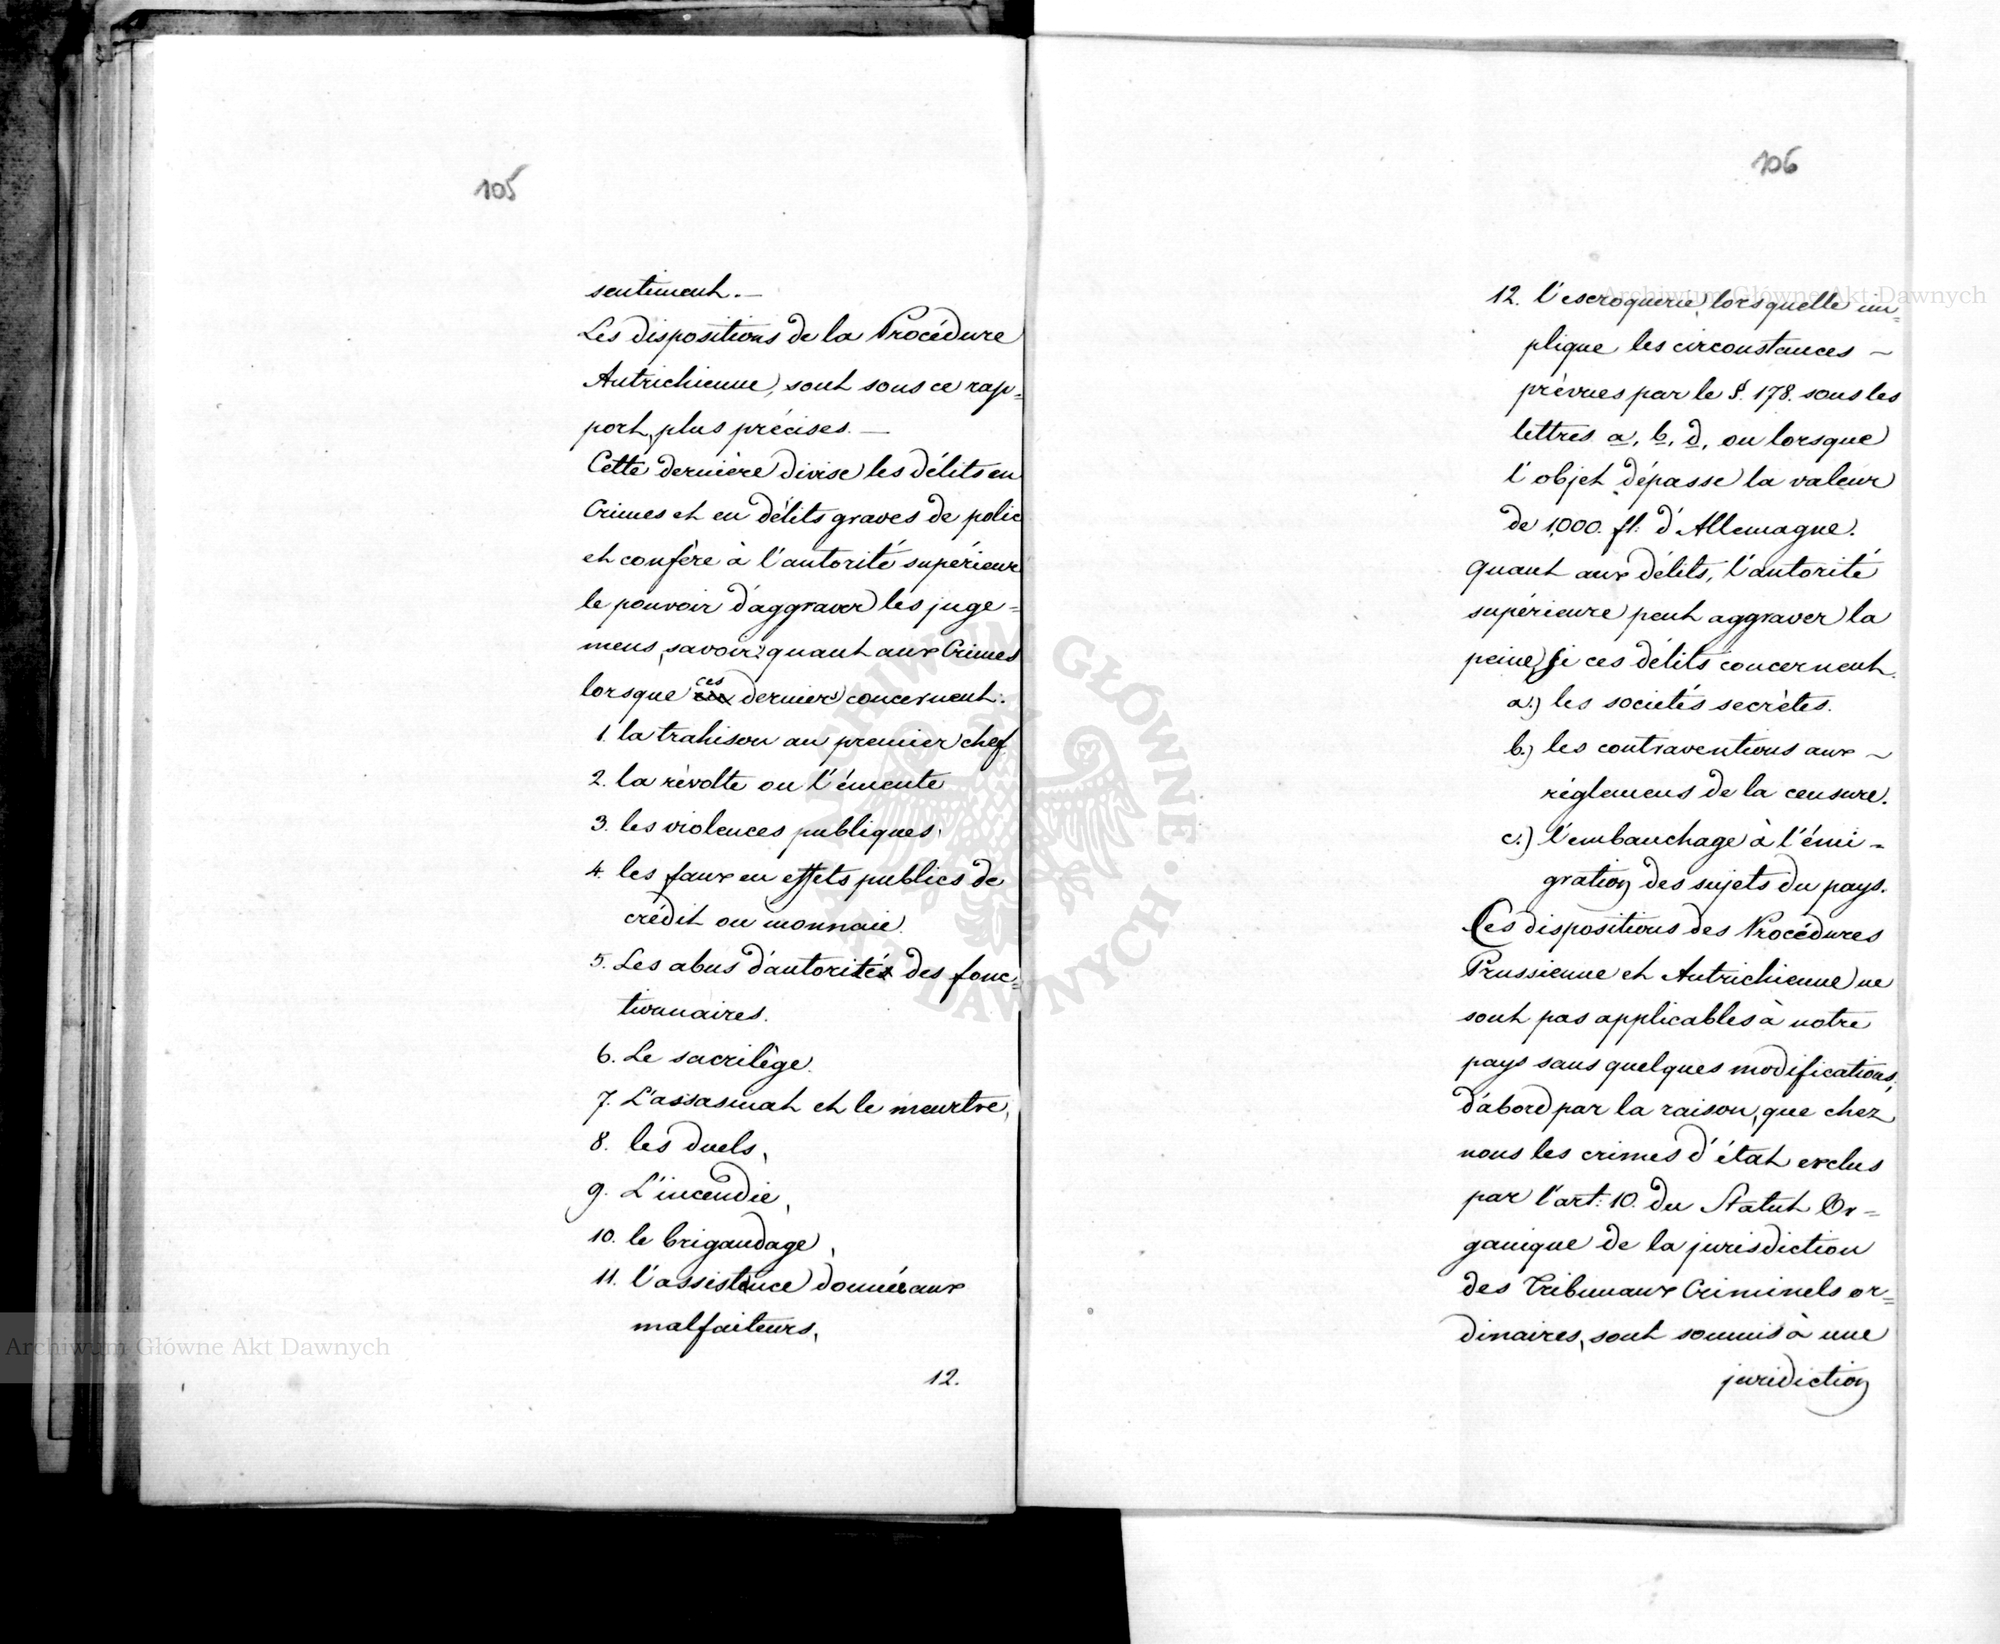 105
sentiment. —
Les dispositions de la Procédure
Autrichienne, sont sous ce rap=
port, plus précises. —
Cette dernière divise les délits en
Crimes et en délits graves de polic
et confère à l'autorité supérieure
le pouvoir d'aggraver les juge=
mens, savoir: quant aux Crimes
lorsque ces derniers concernent:
1. la trahison au premier chef,
2. la révolte ou l'émeute
3. les violences publiques,
4. les faux en effets publics de
crédit ou monnaie.
5. Les abus d'autorités des fonc=
tionnaires.
6. Le sacrilège.
7. L'assasinat et le meurtre,
8. les duels,
9. L'incendie,
10. le brigandage,
11. l'assistence donnée aux
malfaiteurs,
12.
106
12. l'escroquerie, lorsquelle im=
plique les circonstances ~
prévues par le §. 178. sous les
lettres a, b, d, ou lorsque
l'objet dépasse la valeur
de 1,000. fl: d'Allemagne.
Quant aux délits, l'autorité
supérieure peut aggraver la
peine, si ces délits concernent.
a.) les societés secrètes.
b.) les contraventions aux ~
réglemens de la censure.
c.) l'embauchage à l'émi=
gration des sujets du pays.
Ces dispositions des Procédures
Prussienne et Autrichienne ne
sont pas applicables à notre
pays sans quelques modifications,
d'abord par la raison, que chez
nous les crimes d'état exclus
par l'art: 10. du Statut Or=
ganique de la jurisdiction
des Tribunaux Criminels or=
dinaires, sont soumis à une
juridiction
Archiwum Główne Akt Dawnych
Archiwum Główne Akt Dawnych
ARCHIWUM GŁÓWNE · AKT DAWNYCH ·